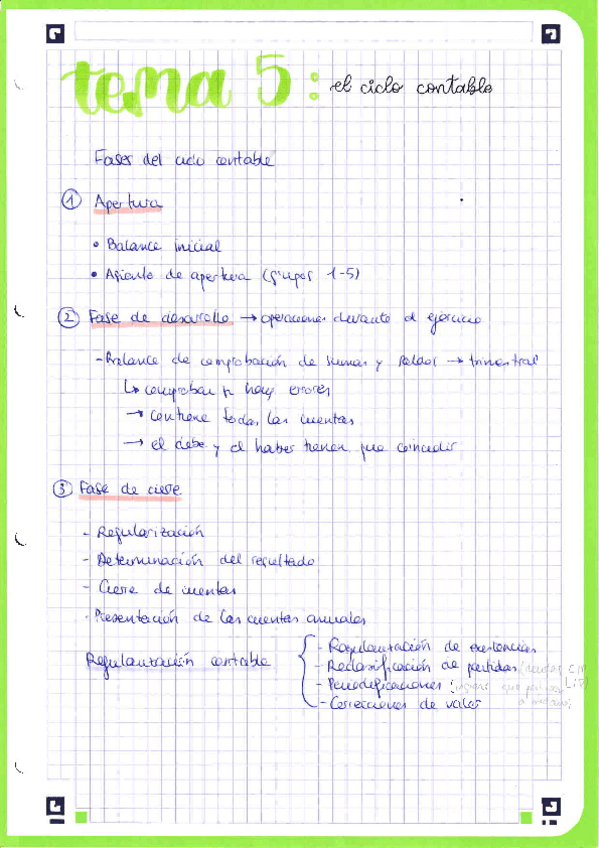 tema 5: el ciclo contable
Fases del ciclo contable
① Apertura
• Balance inicial
• Asiento de apertura (grupos 1-5)
② Fase de desarrollo → operaciones durante el ejercicio
- Balance de comprobación de sumas y saldos → trimestral
↳ comprobar si hay errores
→ contiene todas las cuentas
→ el debe y el haber tienen que coincidir
③ Fase de cierre
- Regularización
- Determinación del resultado
- Cierre de cuentas
- Presentación de las cuentas anuales
Regularización contable
- Regularización de existencias
- Reclasificación de partidas (deudas C/P L/P)
- Periodificaciones
- Correcciones de valor